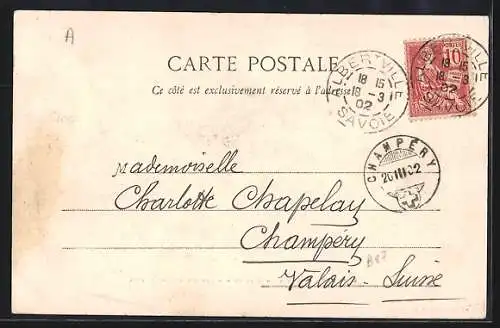 A
CARTE POSTALE
Ce côté est exclusivement réservé à l'adresse
ALBERTVILLE
18 15
18 -3
02
SAVOIE
10
ALBERTVILLE
18 15
18 -3
02
SAVOIE
CHAMPÉRY
20 III 02
Mademoiselle
Charlotte Chapelay
Champéry
Valais - Suisse